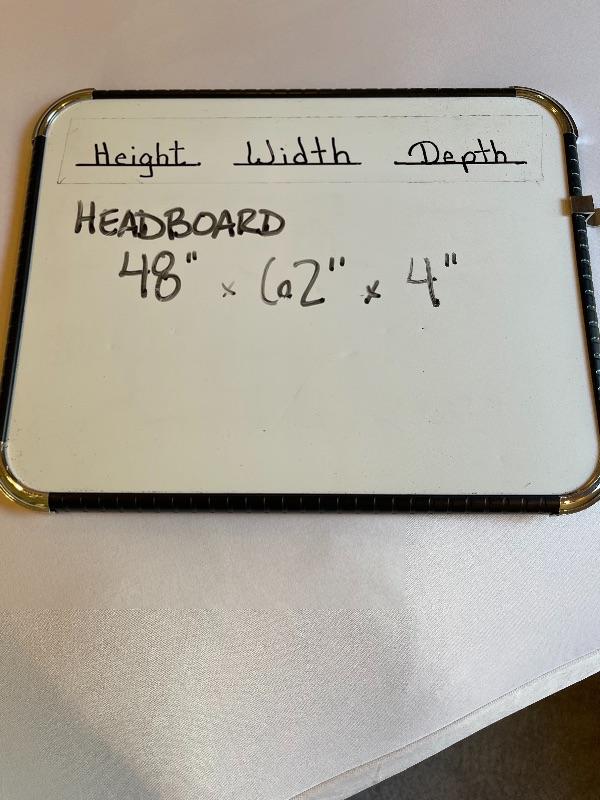 Height Width Depth
HEADBOARD
48" x 62" x 4"